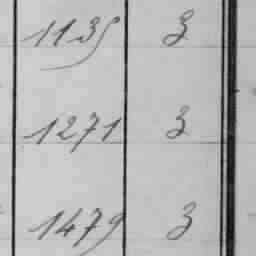 1135 3
1271 3
1479 3